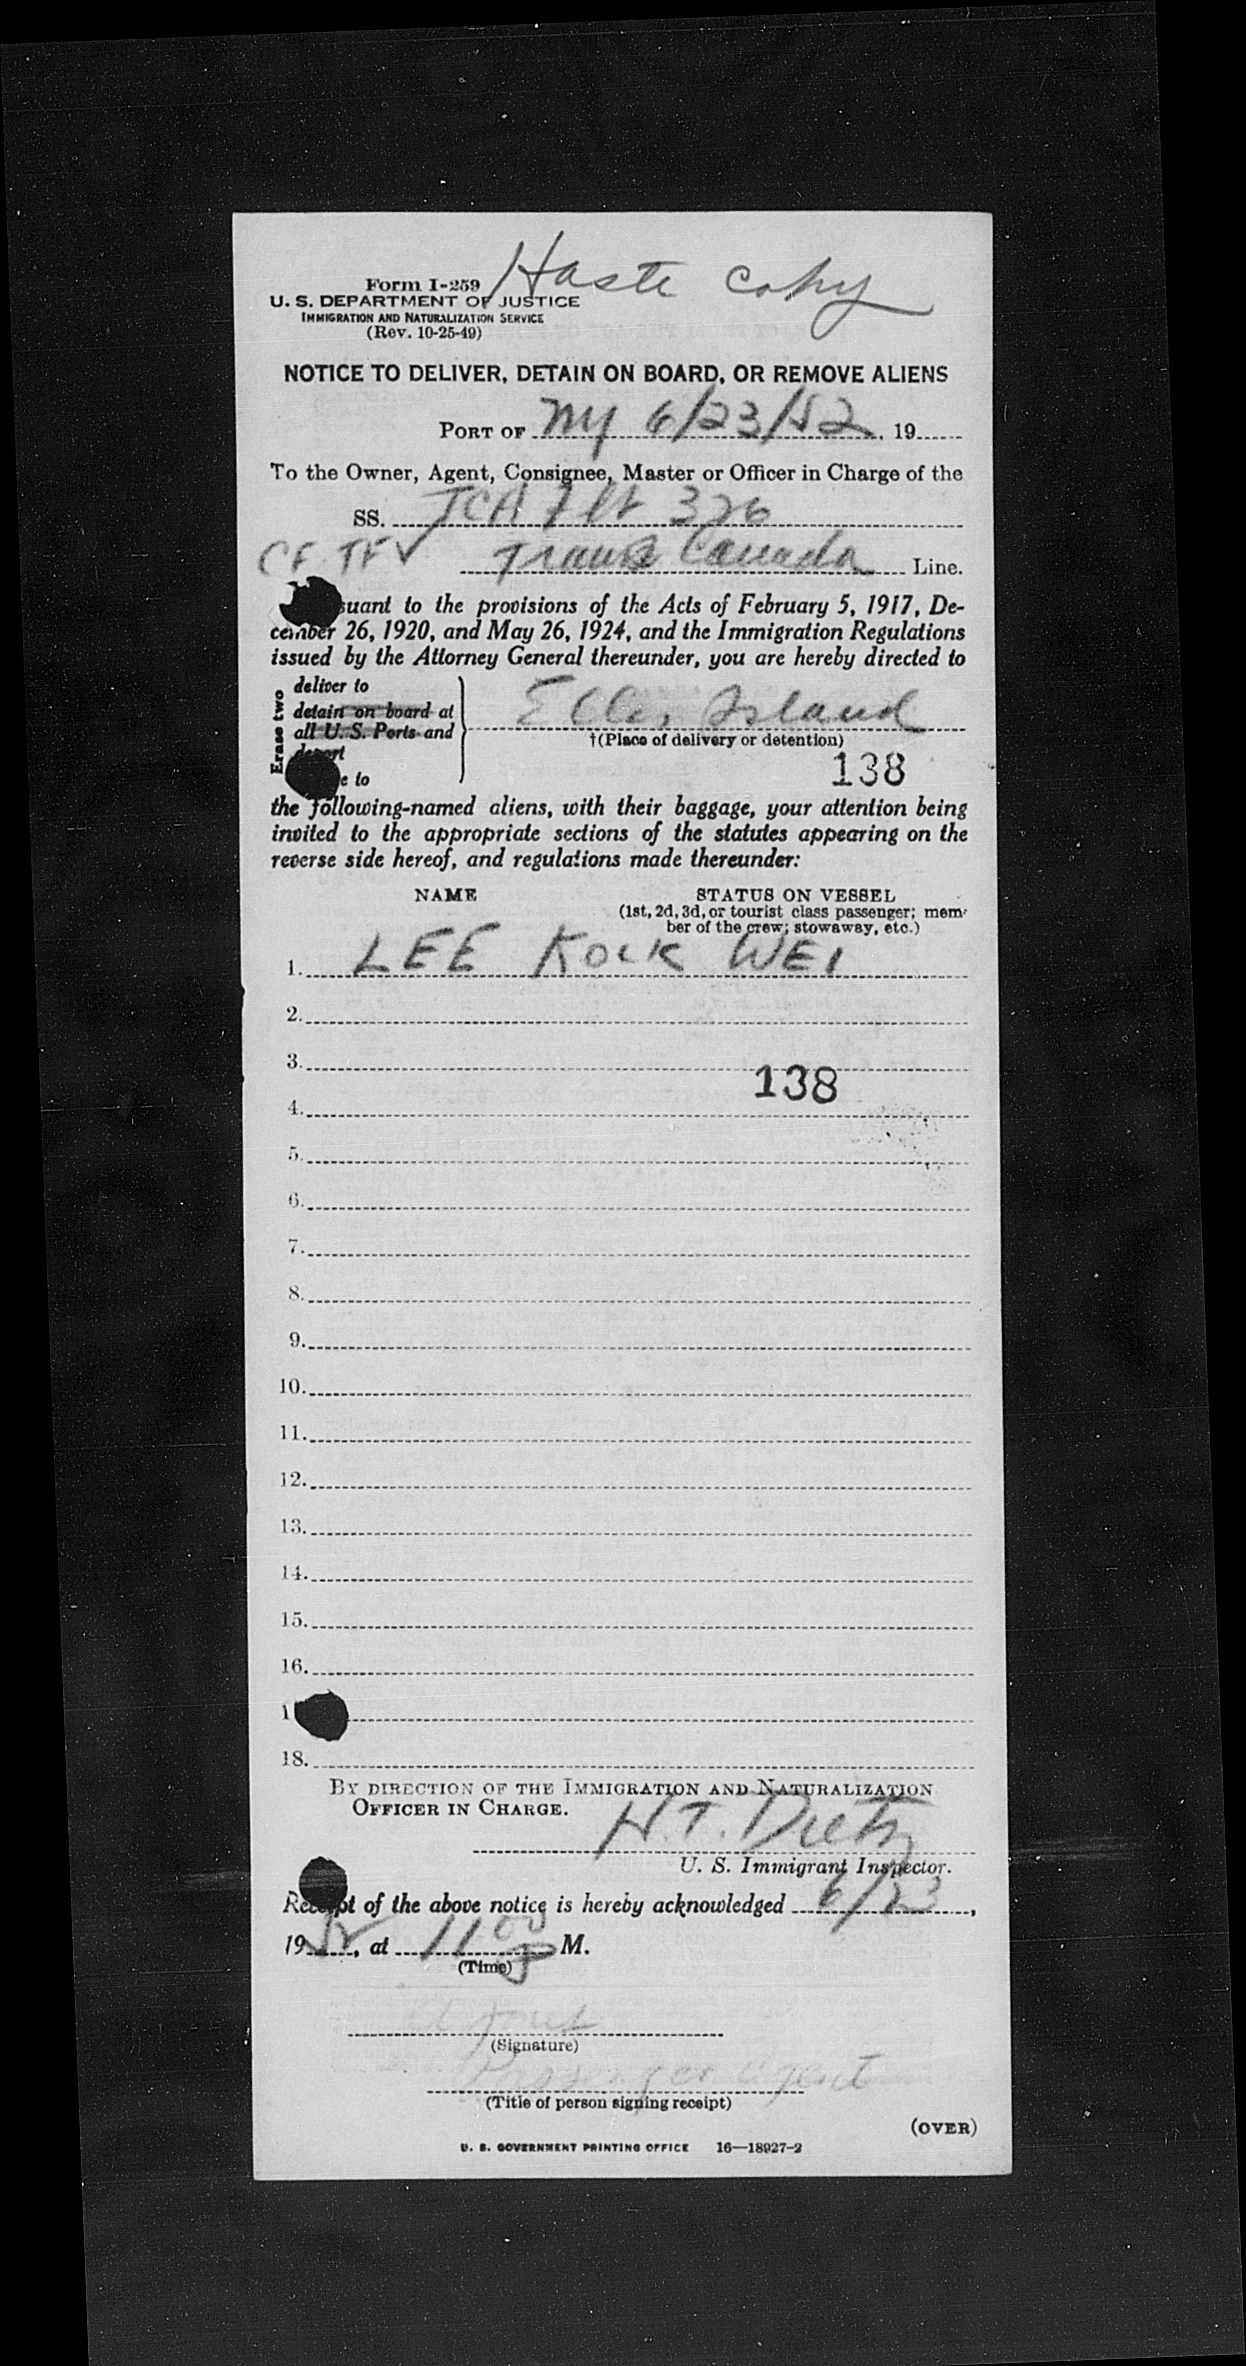 Haste Copy
Form I-259
U. S. DEPARTMENT OF JUSTICE
IMMIGRATION AND NATURALIZATION SERVICE
(Rev. 10-25-49)
NOTICE TO DELIVER, DETAIN ON BOARD, OR REMOVE ALIENS
PORT OF NY 6/23/52, 19
To the Owner, Agent, Consignee, Master or Officer in Charge of the
SS. TCA Flt 326
CF-TFV Trans Canada Line.
suant to the provisions of the Acts of February 5, 1917, De-
cember 26, 1920, and May 26, 1924, and the Immigration Regulations
issued by the Attorney General thereunder, you are hereby directed to
Erase two
deliver to
detain on board at
all U. S. Ports and
deport
e to
Ellis Island
†(Place of delivery or detention)
138
the following-named aliens, with their baggage, your attention being
invited to the appropriate sections of the statutes appearing on the
reverse side hereof, and regulations made thereunder:
NAME STATUS ON VESSEL
(1st, 2d, 3d, or tourist class passenger; mem-
ber of the crew; stowaway, etc.)
1. LEE KOCK WEI
2.
3.
138
4.
5.
6.
7.
8.
9.
10.
11.
12.
13.
14.
15.
16.
1
18.
BY DIRECTION OF THE IMMIGRATION AND NATURALIZATION
OFFICER IN CHARGE.
H.T. Dietz
U. S. Immigrant Inspector.
Receipt of the above notice is hereby acknowledged 6/23,
1952, at 11 00 P M.
(Time)
(Signature)
Passenger Agent
(Title of person signing receipt)
(OVER)
U. S. GOVERNMENT PRINTING OFFICE 16—18927-2